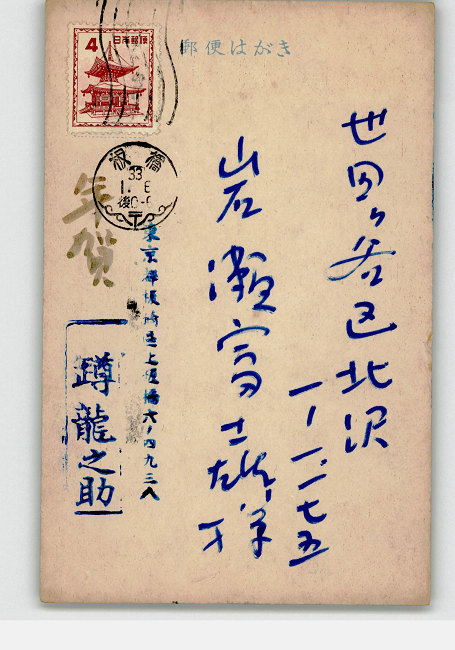 郵便はがき
4 日本郵便
板橋
33
1. 6
後0-6
年賀
世田ヶ谷区北沢
一ー一一七五
岩瀬富士雄様
東京都板橋区上板橋六ノ四九三八
蹲龍之助